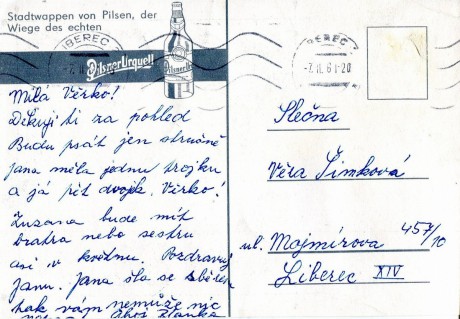 Stadtwappen von Pilsen, der
Wiege des echten
Pilsner Urquell
LIBEREC
-7.II.6 1-20
Milá Věrko!
Děkuji ti za pohled
Budu psát jen stručně
Jana měla jednu trojku
a já pět dvojek. Věrko!
Zuzana bude mít
bratra nebo sestru
asi v květnu. Pozdravuj
Janu. Jana šla se sběrem
tak vám nemůže nic
Ahoj Blanka
Slečna
Věra Šimková
ul. Mojmírova 457/10
Liberec XIV